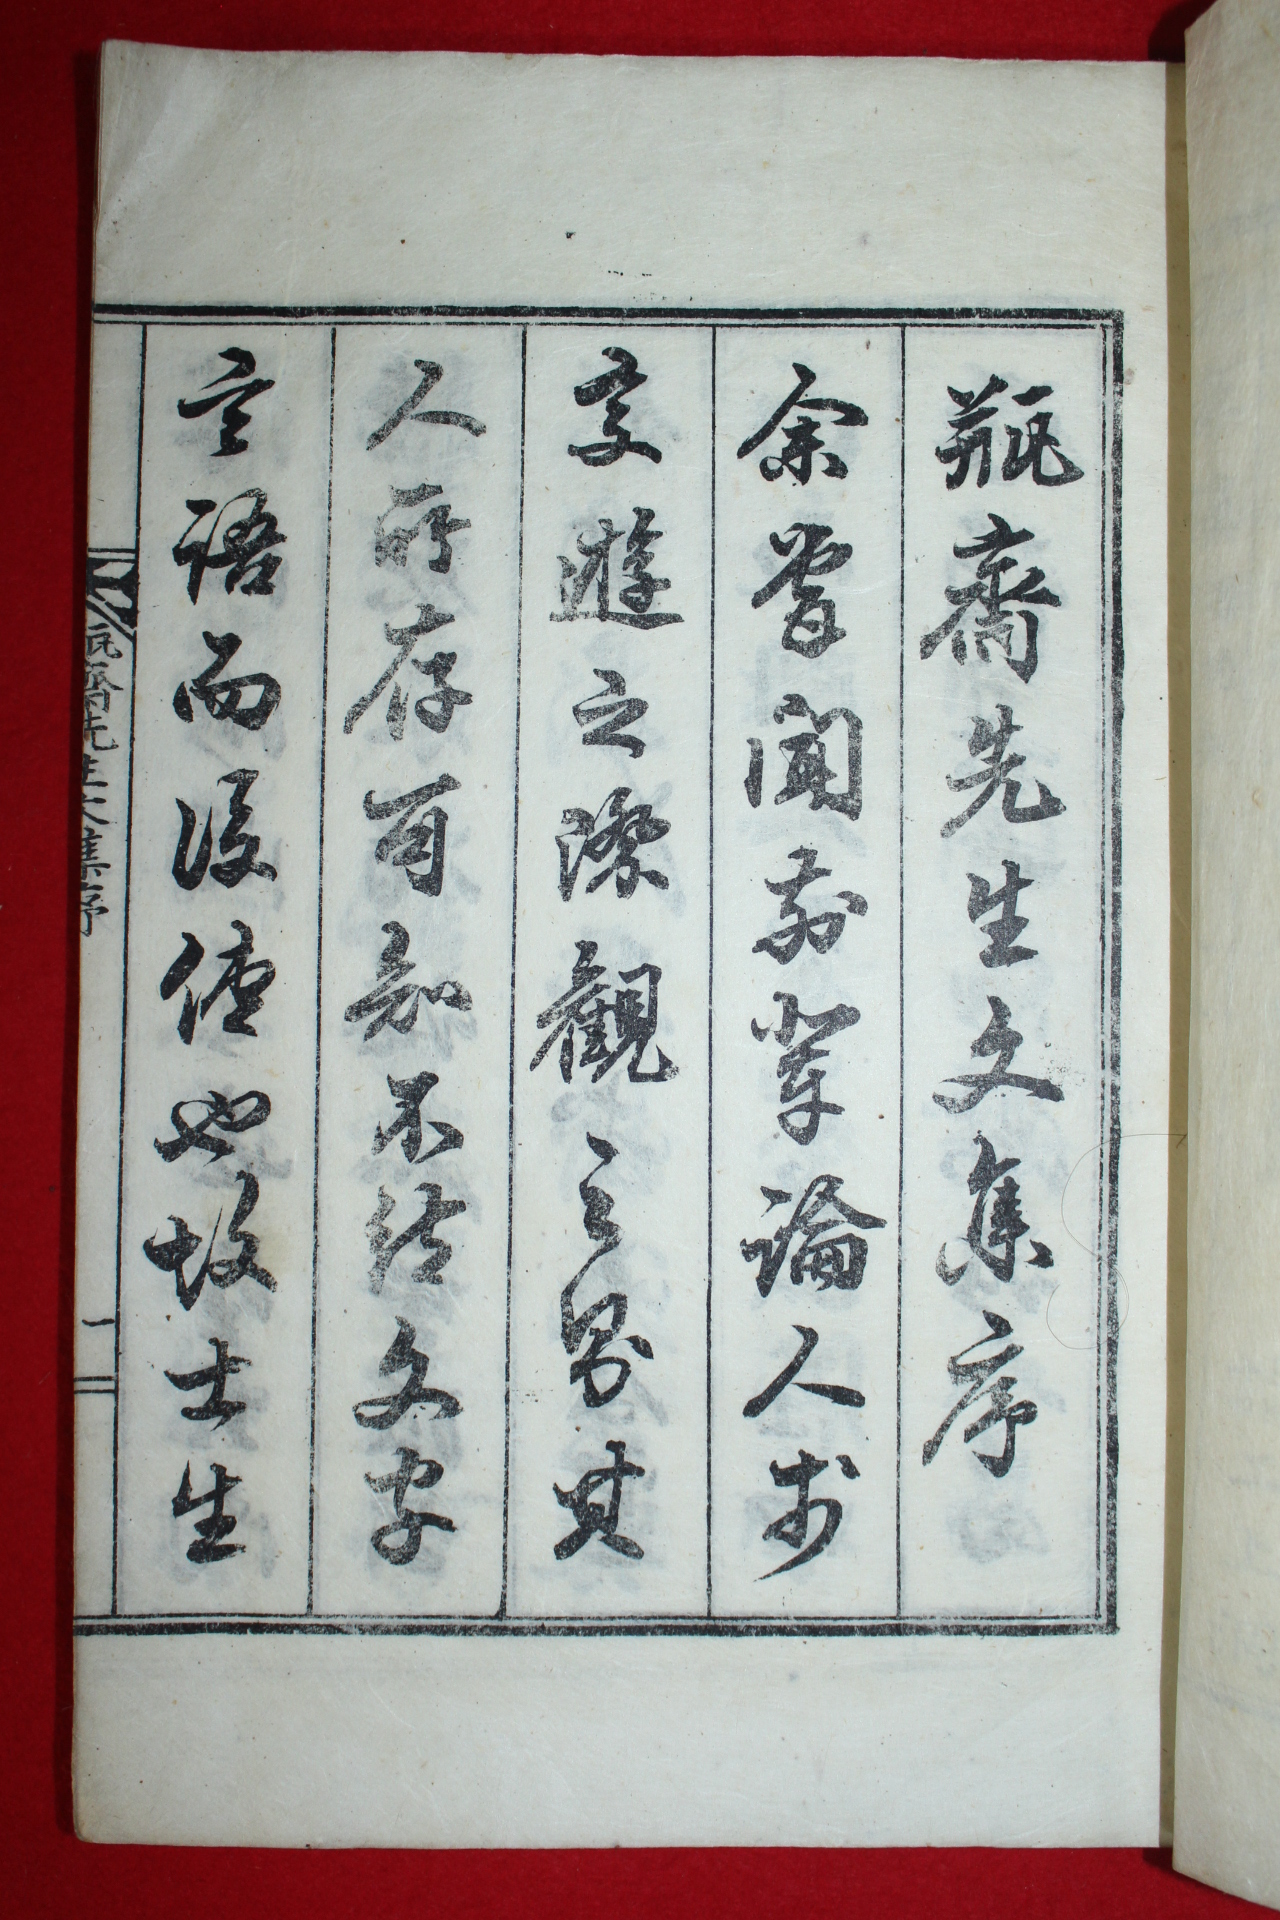 瓶齋先生文集序
余嘗聞前輩論人於
交遊之際觀之是其
人所存可知不待文字
言語而後傳也故士生
瓶齋先生文集序
一